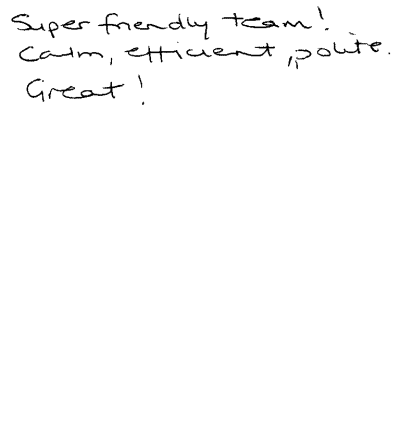 Super friendly team!
Calm, efficient, polite.
Great!